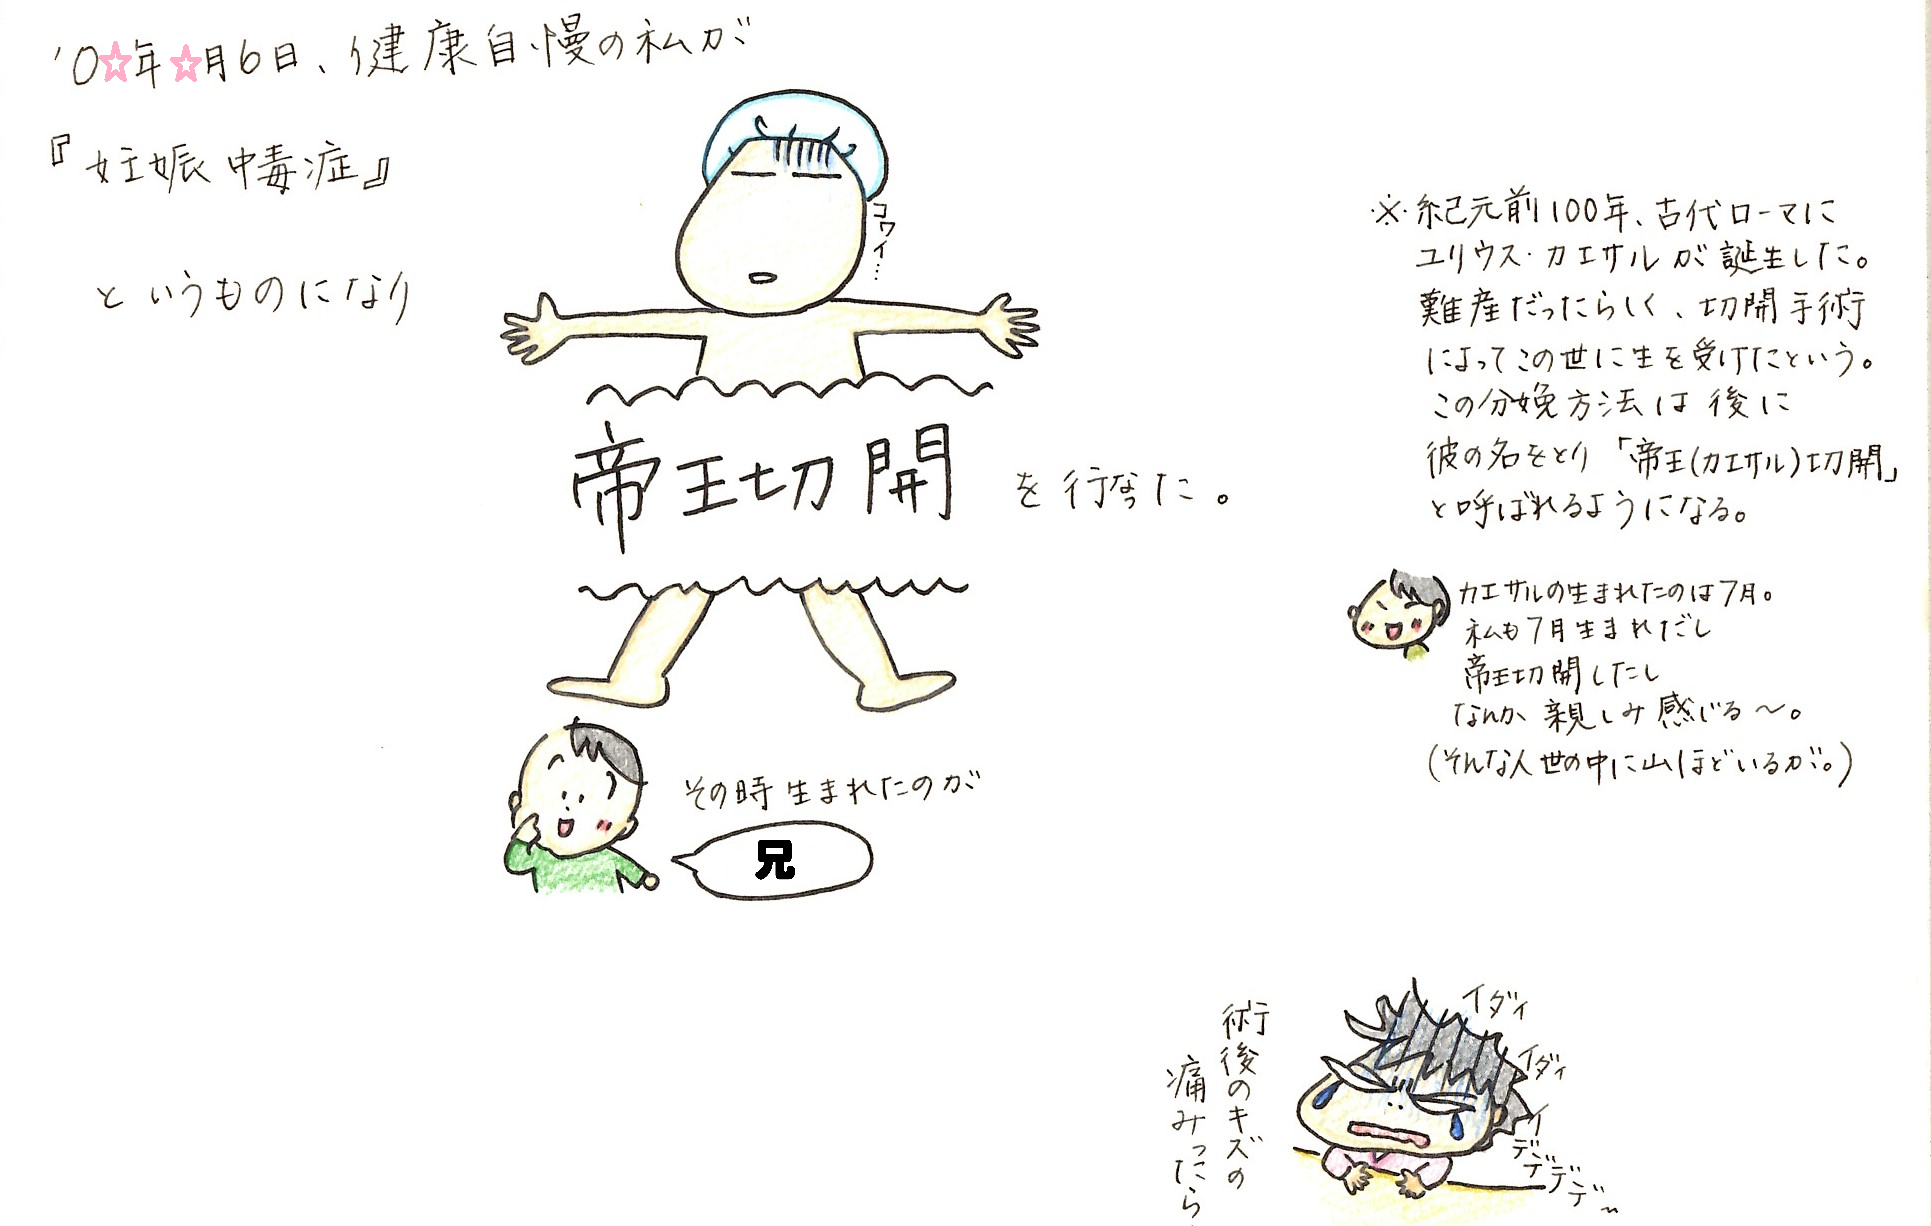 '0☆年☆月6日、健康自慢の私が
『妊娠中毒症』
というものになり
コワイ…
帝王切開
を行なった。
※紀元前100年、古代ローマに
ユリウス・カエサルが誕生した。
難産だったらしく、切開手術
によってこの世に生を受けたという。
この分娩方法は後に
彼の名をとり「帝王(カエサル)切開」
と呼ばれるようになる。
カエサルの生まれたのは7月。
私も7月生まれだし
帝王切開したし
なんか親しみ感じる〜。
(そんな人世の中に山ほどいるが。)
その時生まれたのが
兄
術後のキズの
痛みったら
イダイ
イダイ
イデデデデ〜